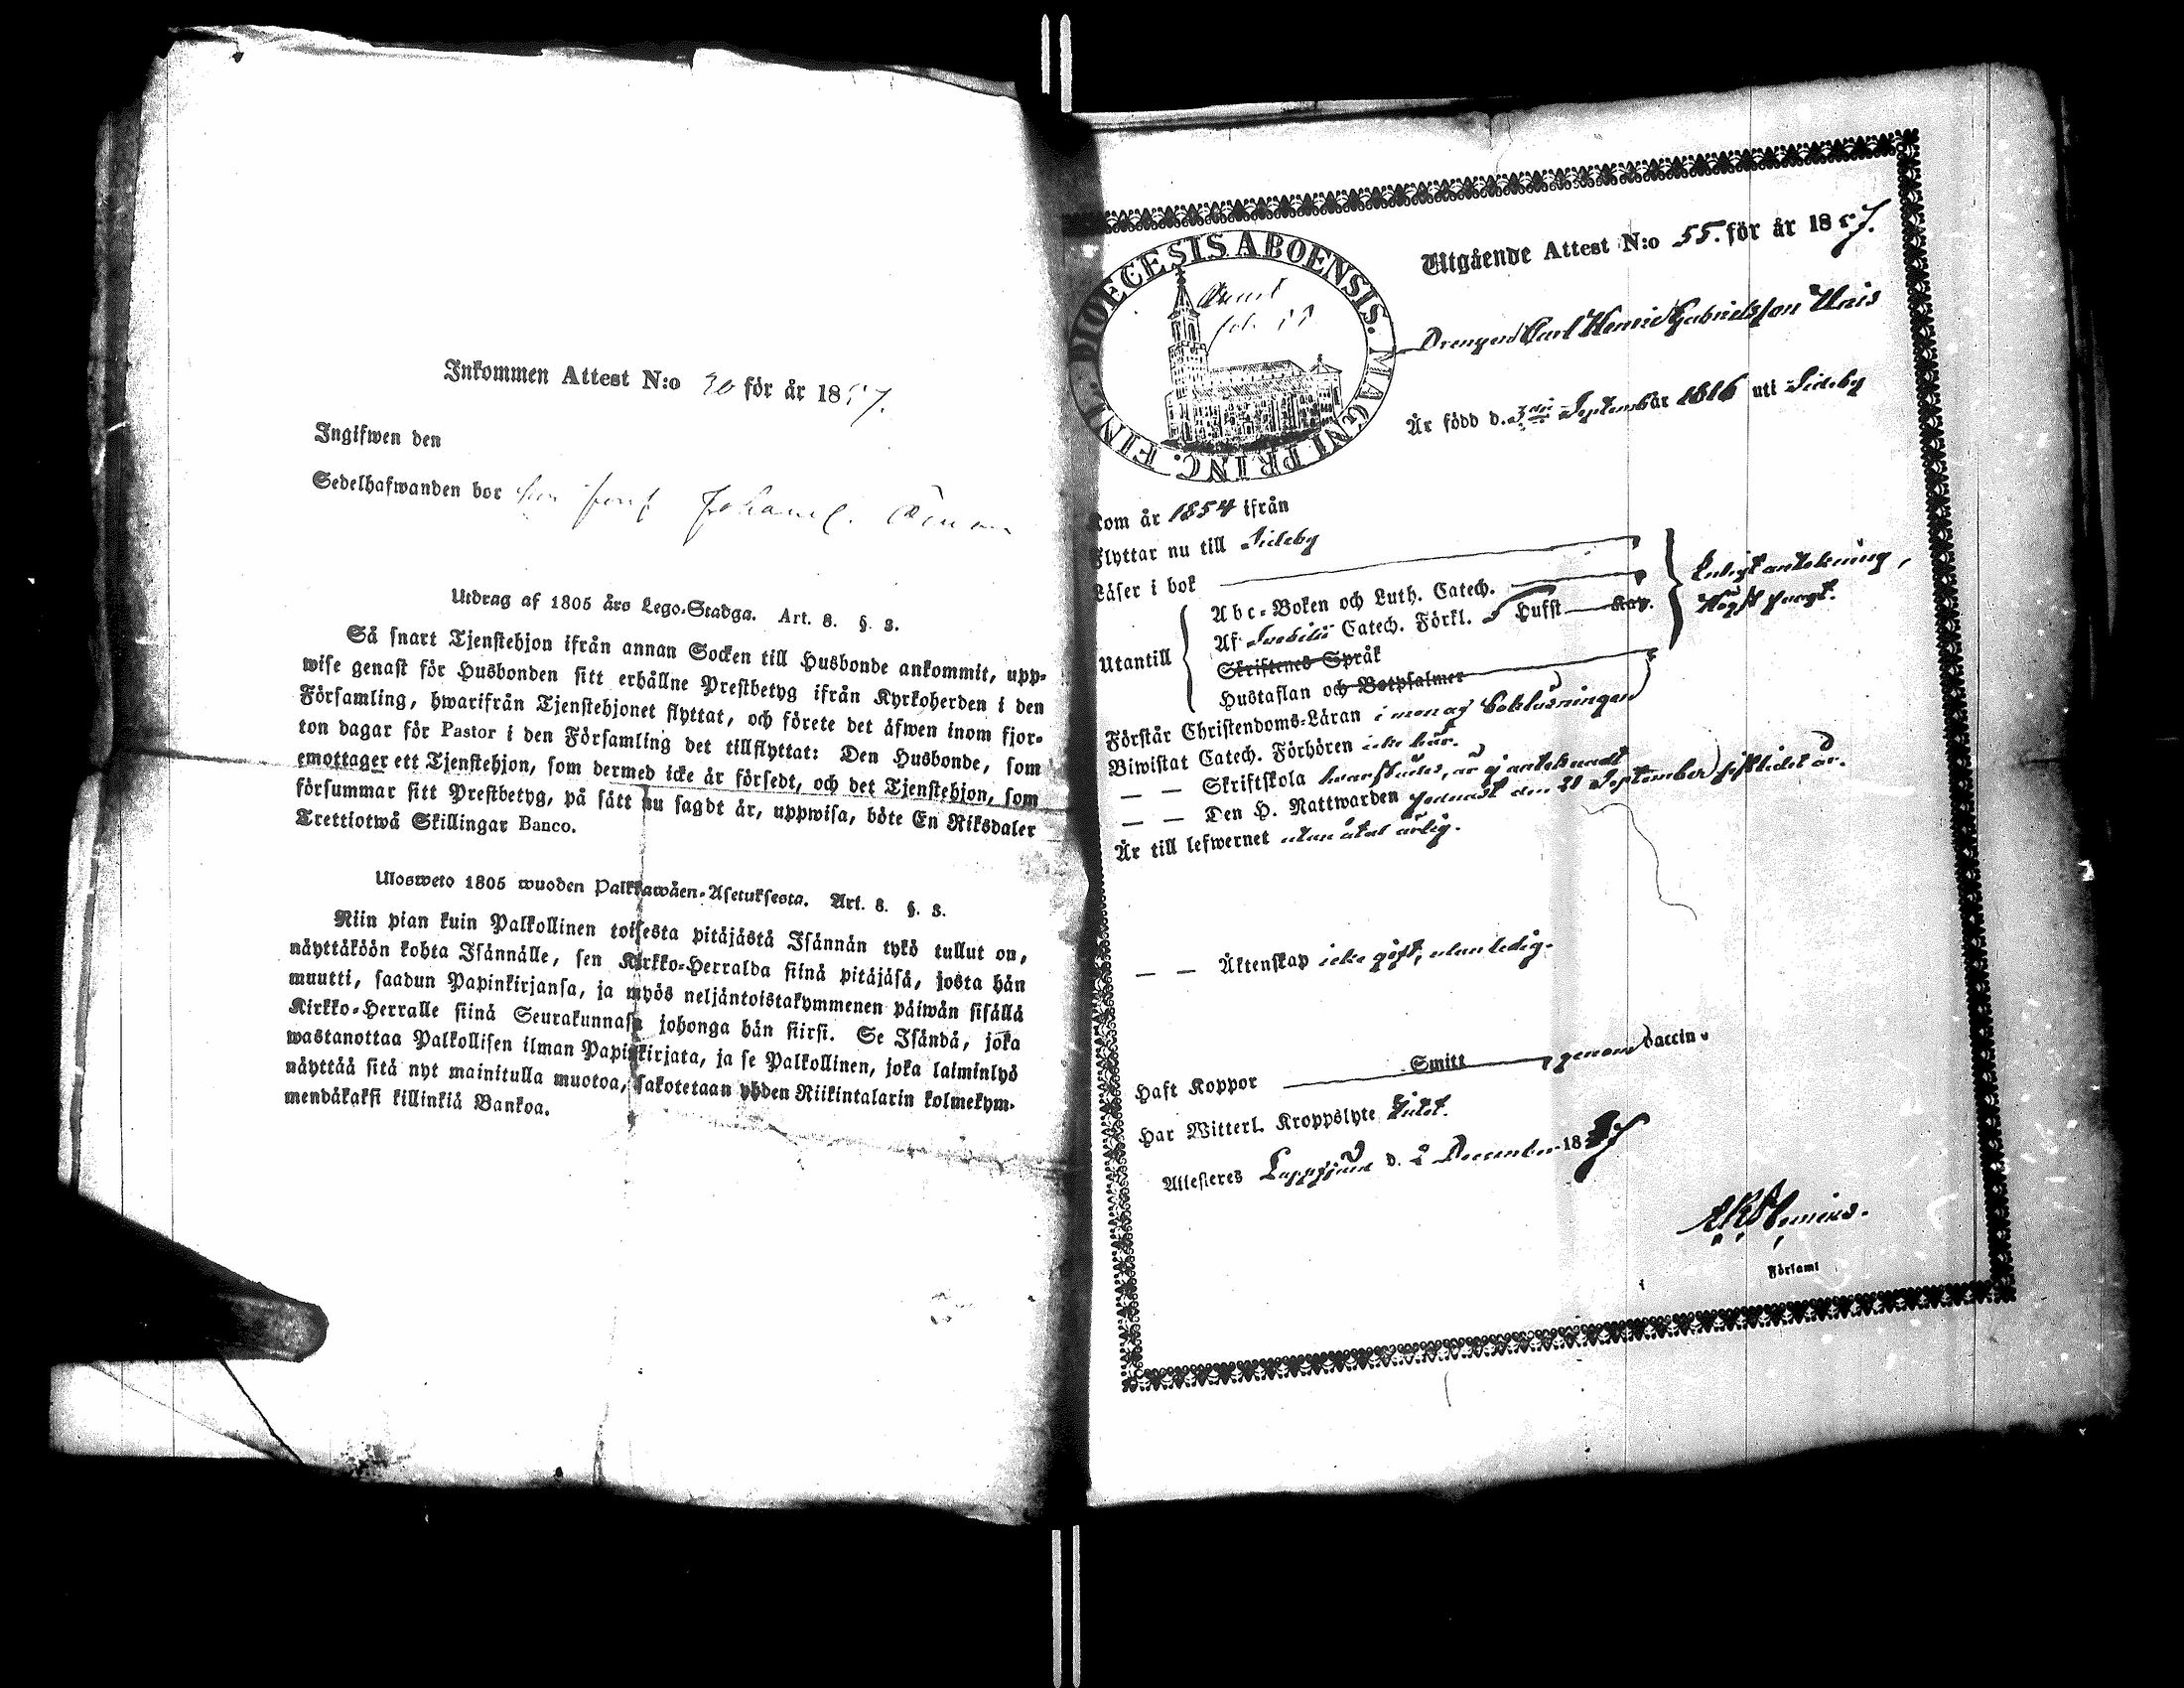 Inkommen Attest N:o 20 för år 1857.
Ingifwen den
Sedelhafwanden bor
Utdrag af 1805 års Lego-Stadga. Art. 8. §. 3.
Så snart Tjenstehjon ifrån annan Socken till Husbonde ankommit, upp-
wise genast för Husbonden sitt erhållne Prestbetyg ifrån Kyrkoherden i den
Församling, hwarifrån Tjenstehjonet flyttat, och förete det äfwen inom fjor-
ton dagar för Pastor i den Församling det tillflyttat: Den Husbonde, som
emottager ett Tjenstehjon, som dermed icke är försedt, och det Tjenstehjon, som
försummar sitt Prestbetyg, på sätt nu sagdt är, uppwisa, böte En Riksdaler
Trettiotwå Skillingar Banco.
Ulosweto 1805 wuoden Palkkawäen-Asetuksesta. Art. 8. §. 3.
Niin pian kuin Palkollinen toisesta pitäjästä Isännän tykö tullut on,
näyttäköön kohta Isännälle, sen Kirkko-Herralda siinä pitäjäsä, josta hän
muutti, saadun Papinkirjansa, ja myös neljäntoistakymmenen päiwän sisällä
Kirkko-Herralle siinä Seurakunnasa johonga hän siirsi. Se Isändä, joka
wastanottaa Palkollisen ilman Papinkirjata, ja se Palkollinen, joka laiminlyö
näyttää sitä nyt mainitulla muotoa, sakotetaan yhden Riikintalarin kolmekym-
mendäkaksi killinkiä Bankoa.
DIOECESIS ABOENSIS. MAGNI PRINC. FINL.
Utgående Attest N:o 55. för år 1857.
Drengen Carl Henric Gabrielsson Uais
Är född d. 3die September 1816 uti Sideby
Kom år 1854 ifrån
Flyttar nu till Sideby
Läser i bok
Utantill
Abc-Boken och Luth. Catech.
Af Svebilii Catech. Förkl. 5 Hufst Kap.
Skriftenes Språk
Hustaflan och Botpsalmer
Enligt antekning,
Högst svagt.
Förstår Christendoms-Läran i mon af bokläsningen
Biwistat Catech. Förhören icke här.
— — Skriftskola hvarstädes, är ej antecknadt
— — Den H. Nattwarden sednast den 21 September sistlidet år.
Är till lefwernet utan åtal ärlig.
— — Äktenskap icke gift, utan ledig.
Haft Koppor Smitt genom vaccin
Har Witterl. Kroppslyte Intet.
Attesteres Lappfjärd d. 2 December 1857
Församl